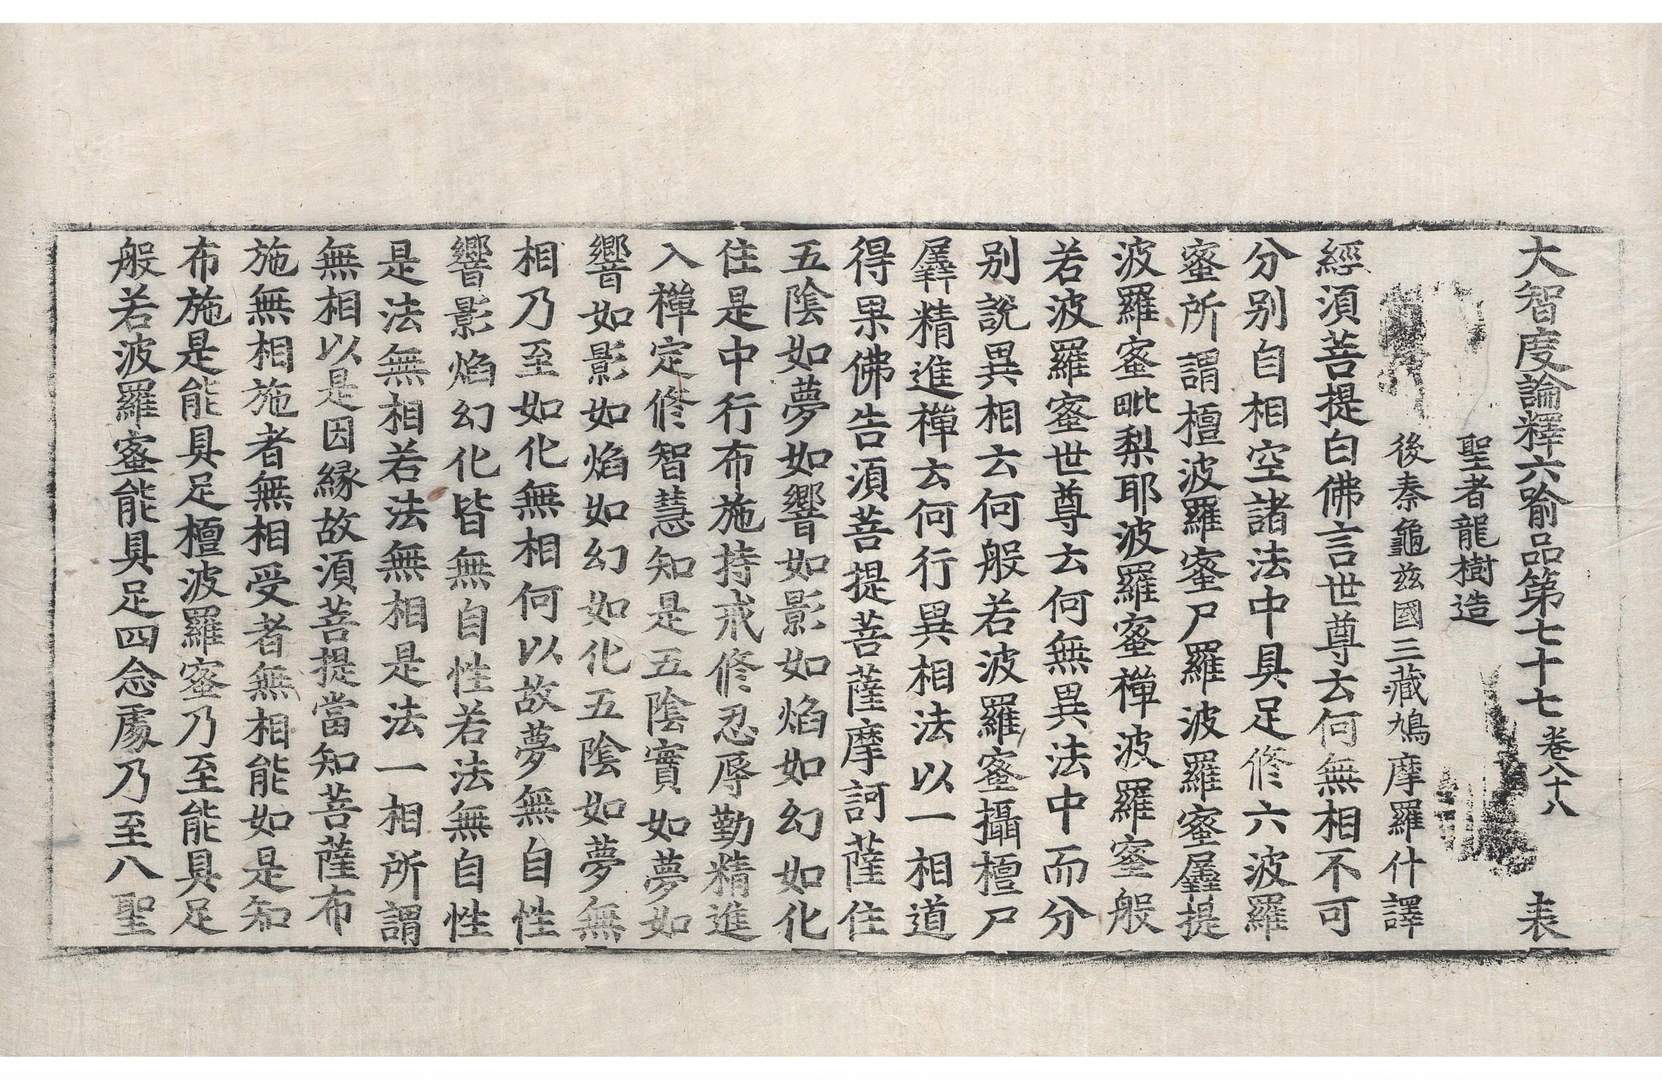 大智度論釋六喻品第七十七 卷八十八 表
聖者龍樹造
後秦龜茲國三藏鳩摩羅什譯
經須菩提白佛言世尊云何無相不可
分別自相空諸法中具足修六波羅
蜜所謂檀波羅蜜尸羅波羅蜜羼提
波羅蜜毗梨耶波羅蜜禪波羅蜜般
若波羅蜜世尊云何無異法中而分
別說異相云何般若波羅蜜攝檀尸
羼精進禪云何行異相法以一相道
得果佛告須菩提菩薩摩訶薩住
五陰如夢如響如影如焰如幻如化
住是中行布施持戒修忍辱勤精進
入禪定修智慧知是五陰實如夢如
響如影如焰如幻如化五陰如夢無
相乃至如化無相何以故夢無自性
響影焰幻化皆無自性若法無自性
是法無相若法無相是法一相所謂
無相以是因緣故須菩提當知菩薩布
施無相施者無相受者無相能如是知
布施是能具足檀波羅蜜乃至能具足
般若波羅蜜能具足四念處乃至八聖